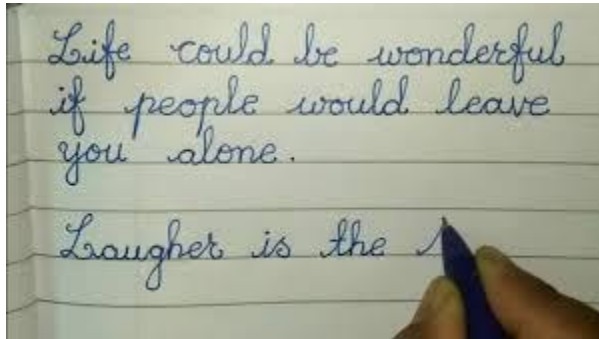 Life could be wonderful
if people would leave
you alone.
Laugher is the